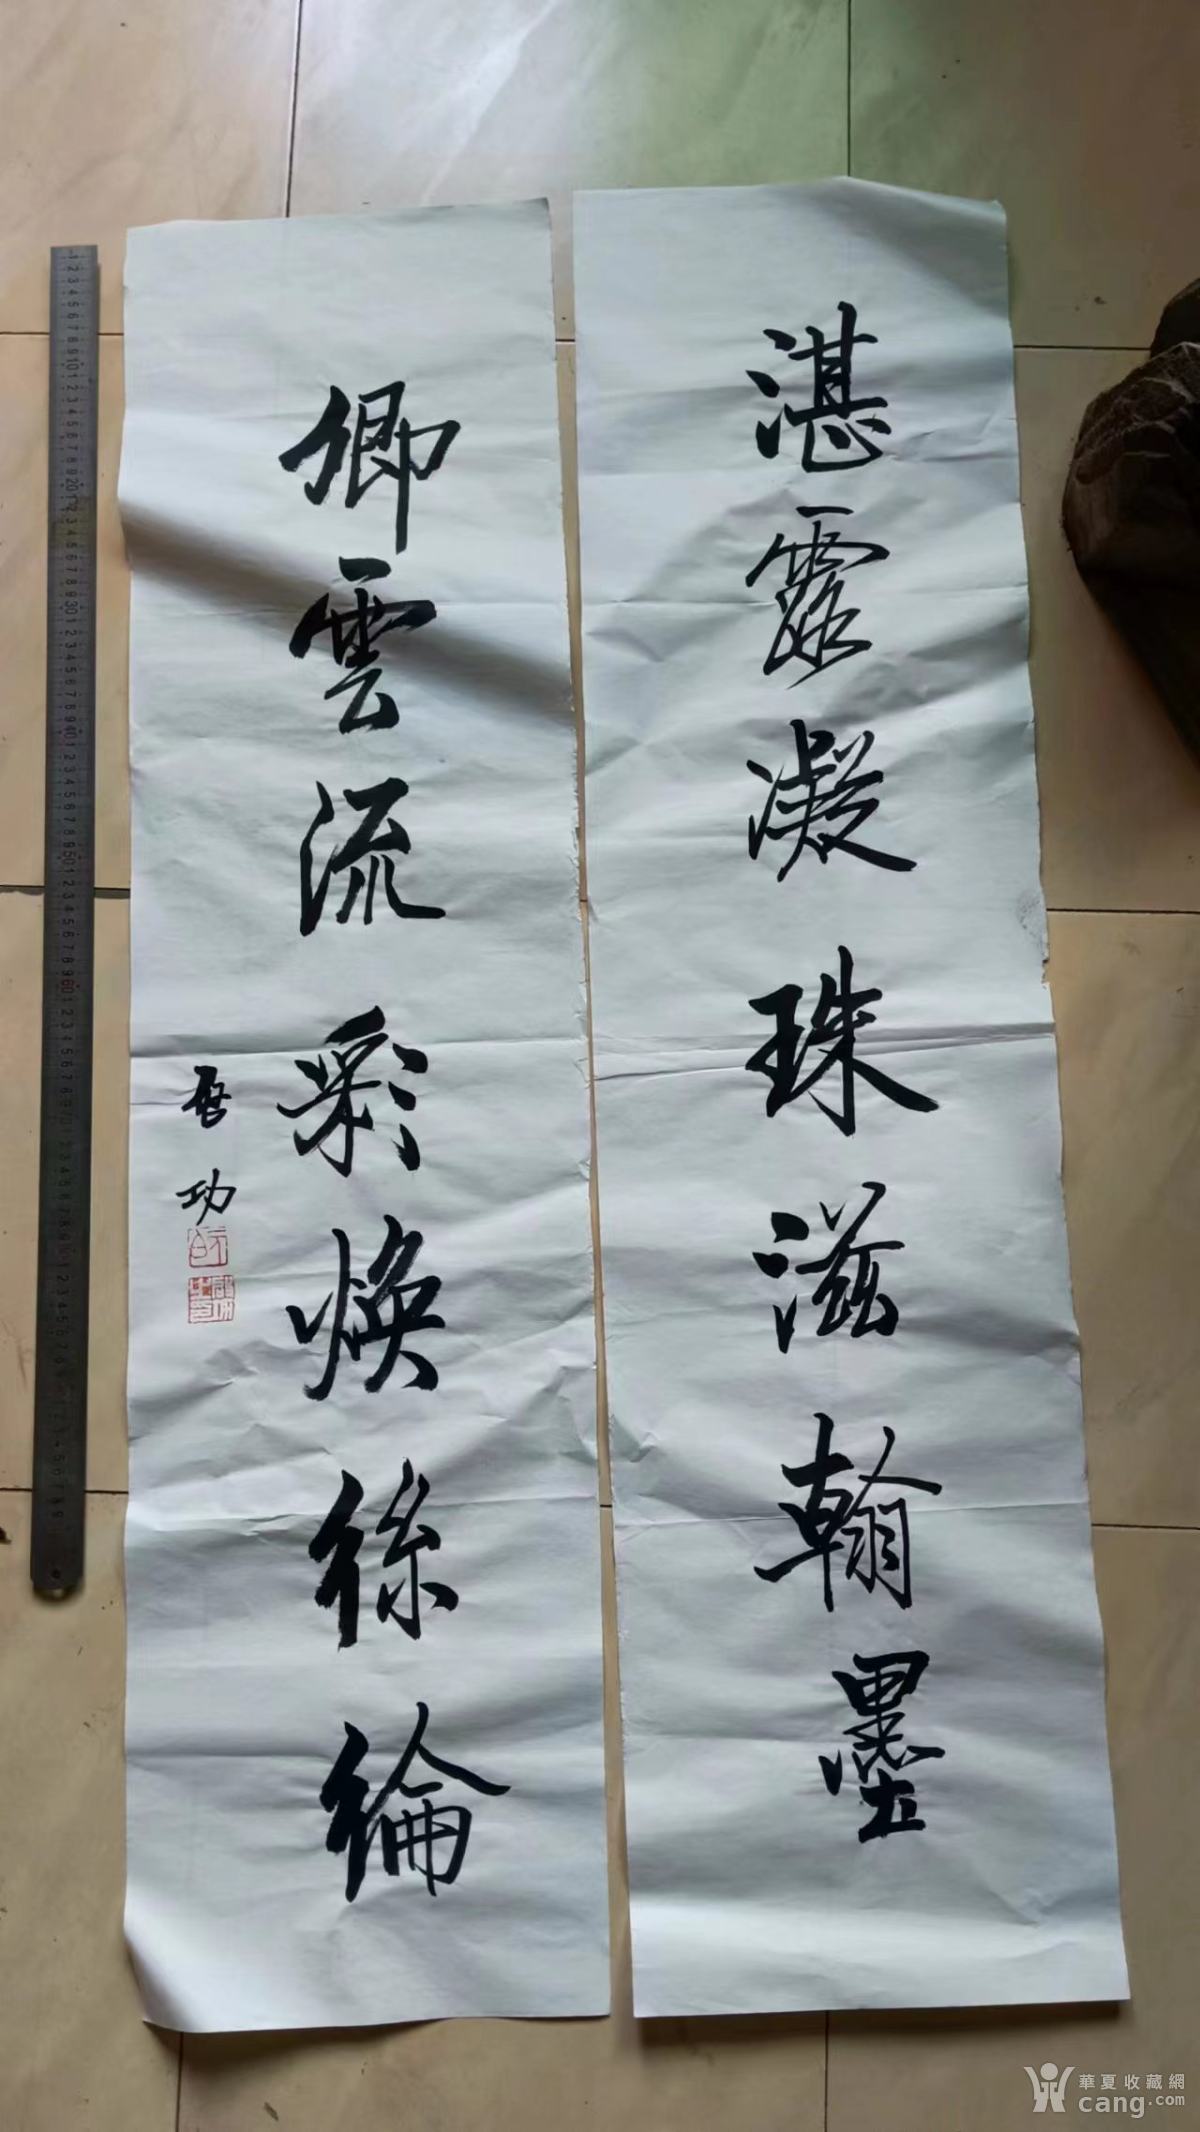 湛露凝珠滋翰墨
卿雲流彩煥絲綸
啓功
華夏收藏網
cang.com